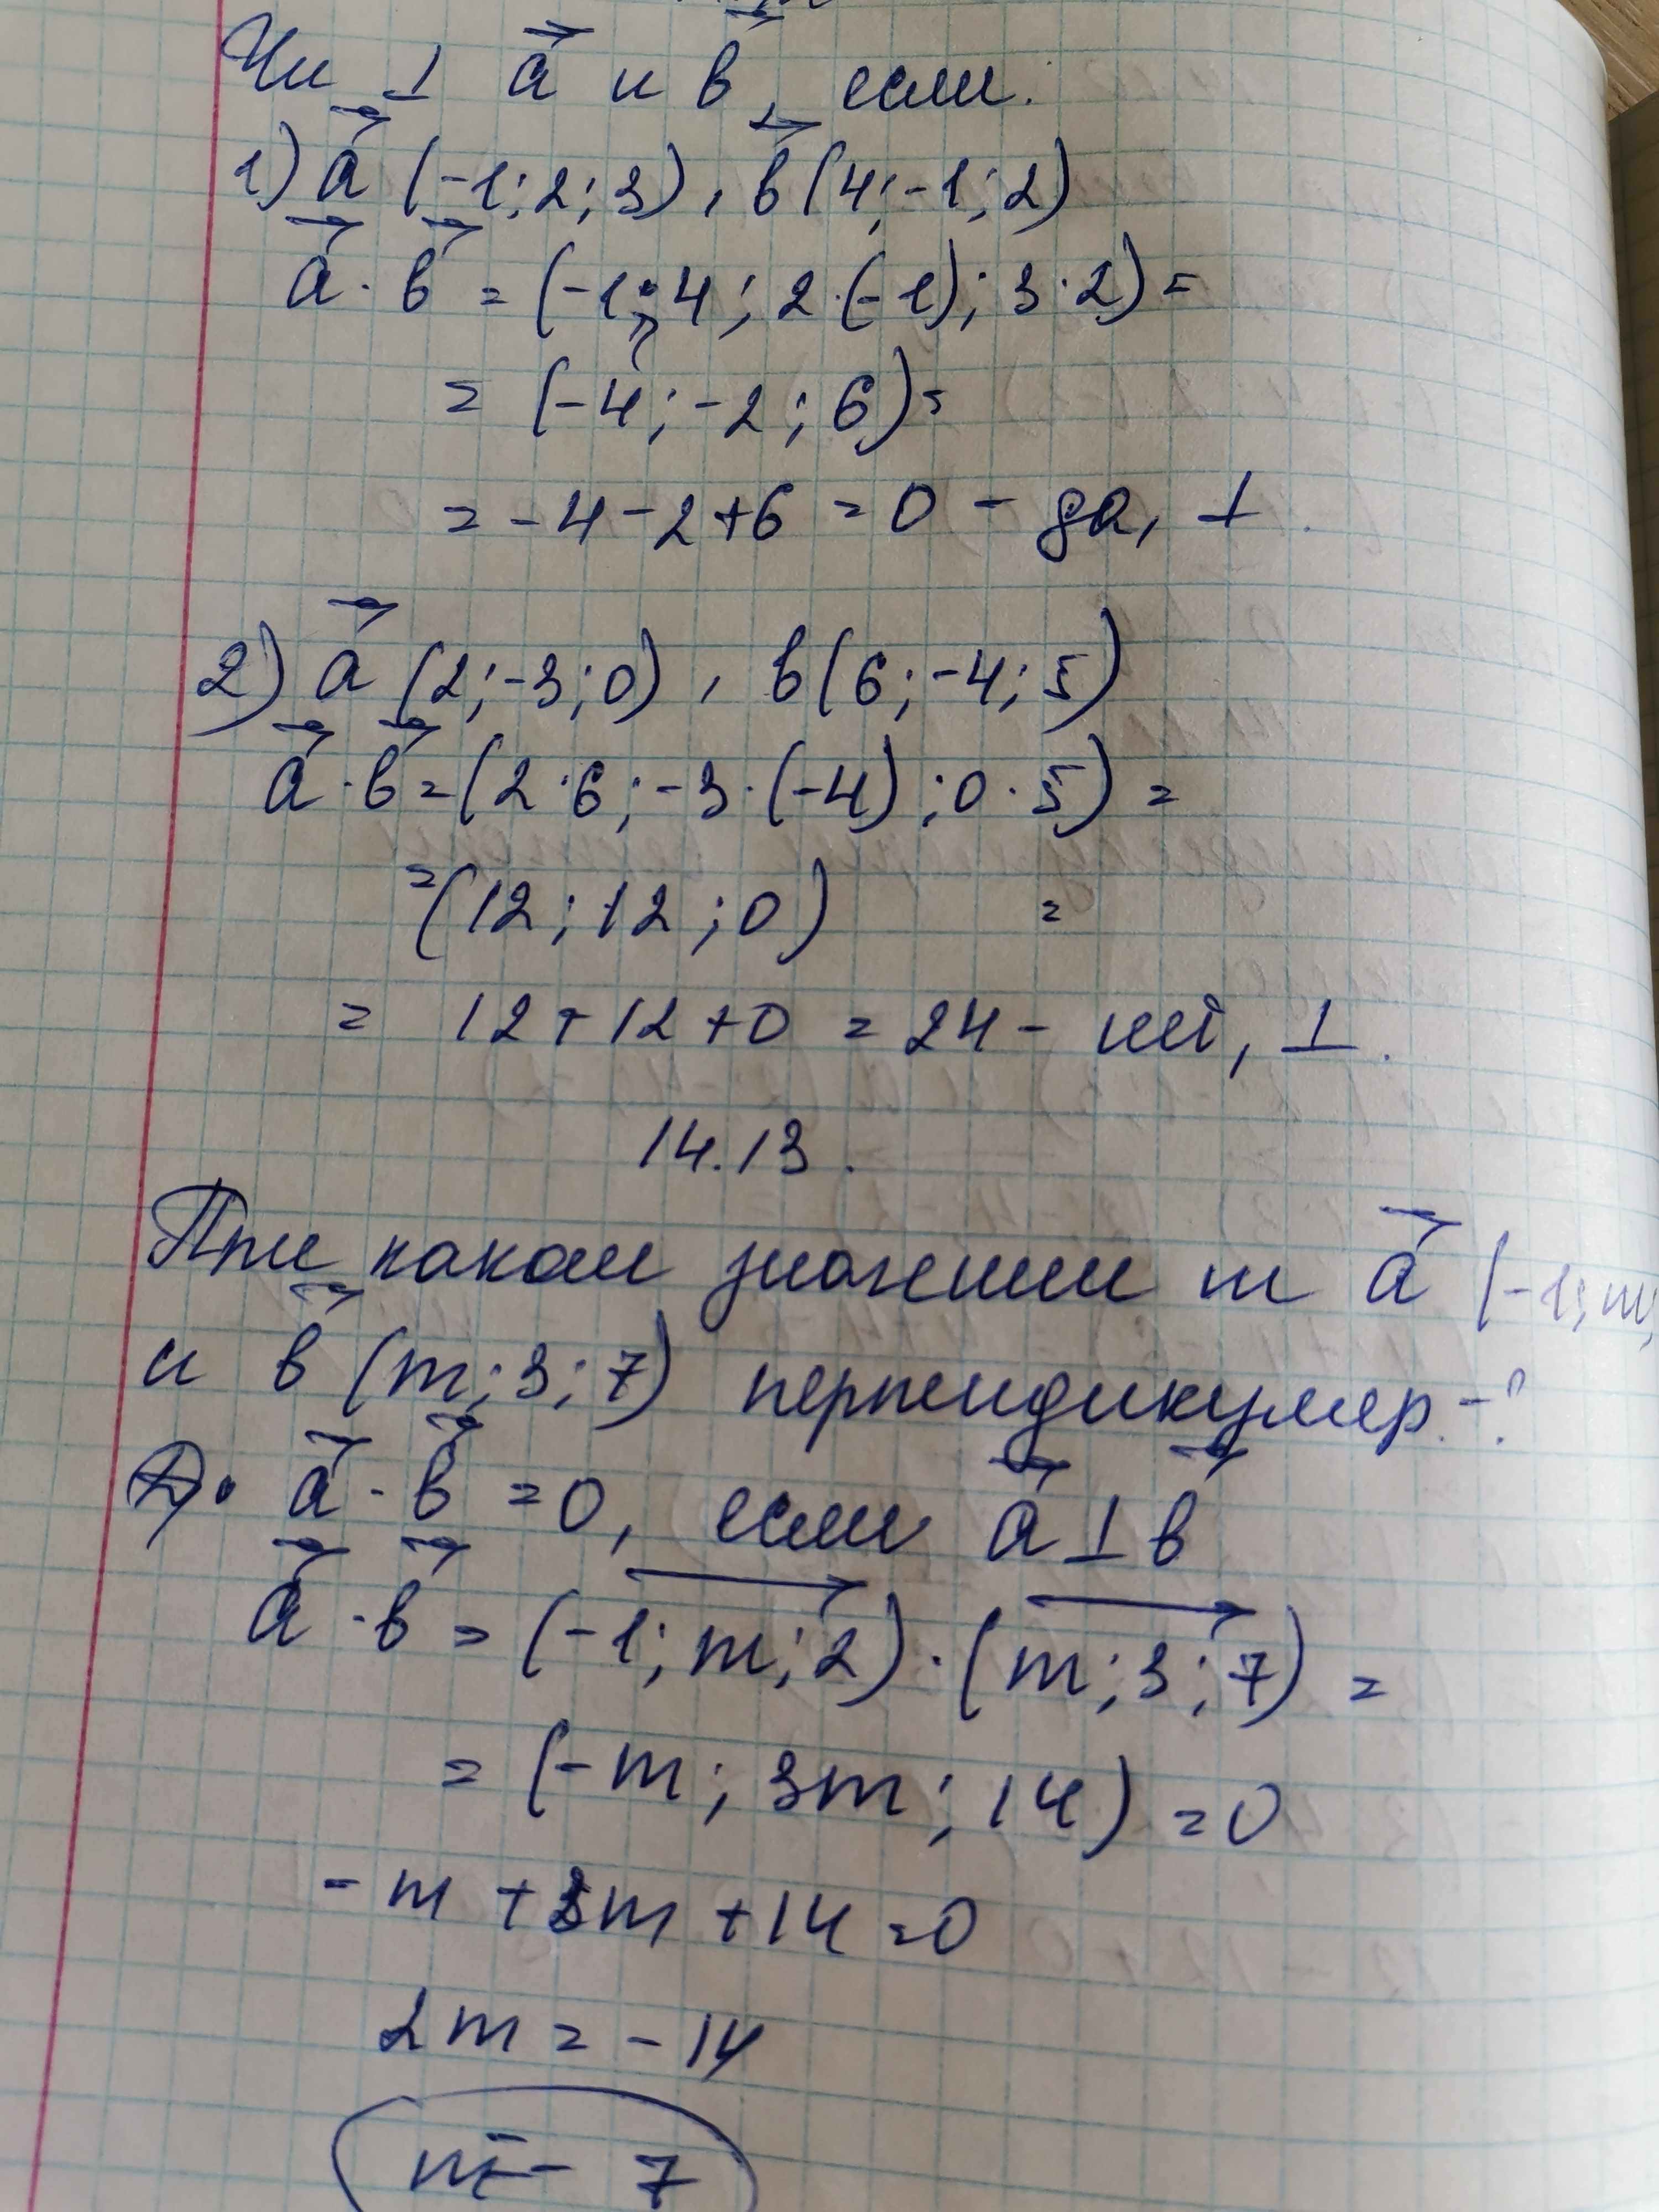 Чи ⊥ a⃗ и b⃗, если:
1) a⃗ (-1; 2; 3), b⃗ (4; -1; 2)
a⃗ · b⃗ = (-1 · 4; 2 · (-1); 3 · 2) =
= (-4; -2; 6) =
= -4 - 2 + 6 = 0 - да, ⊥.
2) a⃗ (2; -3; 0), b (6; -4; 5)
a⃗ · b⃗ = (2 · 6; -3 · (-4); 0 · 5) =
= (12; 12; 0) =
= 12 + 12 + 0 = 24 - нет, ⊥.
14.13.
При каком значении m a⃗ (-1; m;
и b⃗ (m; 3; 7) перпендикуляр. - ?
a⃗ · b⃗ = 0, если a⃗ ⊥ b⃗
a⃗ · b⃗ = (-1; m; 2) · (m; 3; 7) =
= (-m; 3m; 14) = 0
-m + 3m + 14 = 0
2m = -14
m = - 7